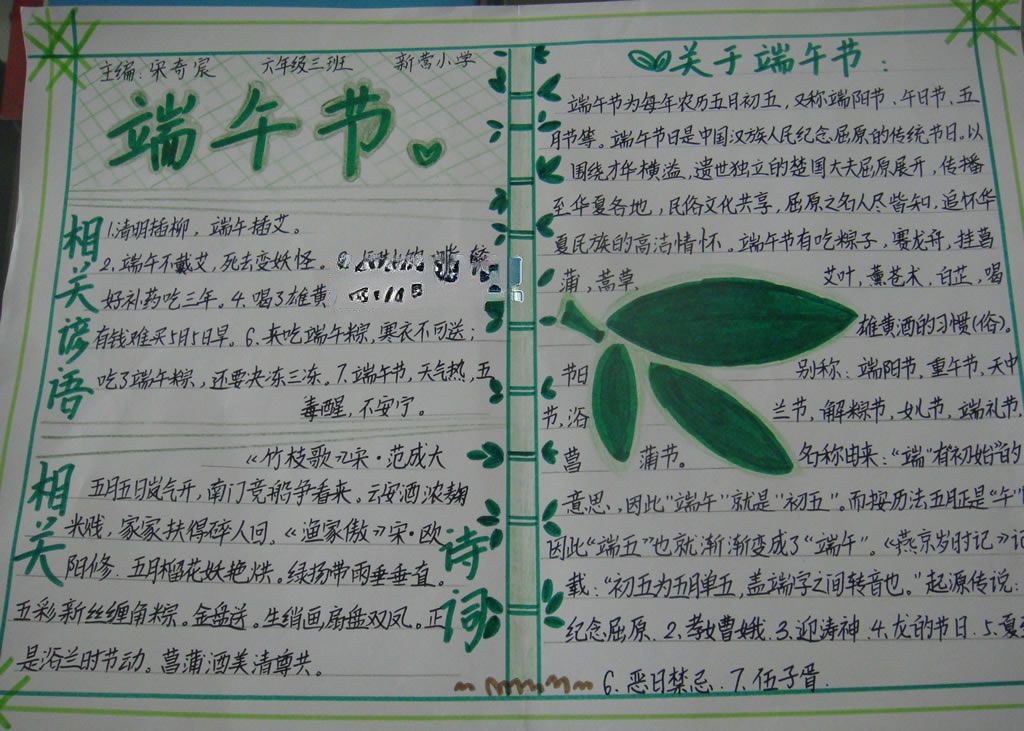 主编:宋奇宸 六年级三班 新营小学
端午节
相关谚语
1.清明插柳，端午插艾。
2.端午不戴艾，死去变妖怪。
好补药吃三年。4.喝了雄黄
有钱难买5月5日早。6.未吃端午粽，寒衣不可送；
吃了端午粽，还要决冻三冻。7.端午节，天气热，五
毒醒，不安宁。
相关诗词
《竹枝歌》宋·范成大
五月五日岚气开，南门竞船争看来。云安酒浓麹
米贱，家家扶得碎人回。《渔家傲》宋·欧
阳修.五月榴花妖艳烘。绿扬带雨垂垂直。
五彩新丝缠角粽。金盘送。生绡画扇盘双凤。正
是浴兰时节动。菖蒲酒美清尊共。
关于端午节：
端午节为每年农历五月初五，又称端阳节、午日节、五
月节等。端午节日是中国汉族人民纪念屈原的传统节日。以
围绕才华横溢，遗世独立的楚国大夫屈原展开，传播
至华夏各地，民俗文化共享，屈原之名人尽皆知，追怀华
夏民族的高洁情怀。端午节有吃粽子，赛龙舟，挂菖
蒲，蒿草 艾叶，薰苍术，白芷，喝
雄黄酒的习惯(俗)。
别称：端阳节，重午节，天中
节日
节，浴 兰节，解粽节，女儿节，端礼节，
菖 蒲节。 名称由来：“端”有初始的
意思，因此“端午”就是“初五”。而按历法五月正是“午”
因此“端五”也就渐渐变成了“端午”。《燕京岁时记》记
载：“初五为五月单五，盖端字之间转音也。”起源传说：
纪念屈原.2.孝女曹娥.3.迎涛神.4.龙的节日.5.夏
6.恶日禁忌.7.伍子胥.